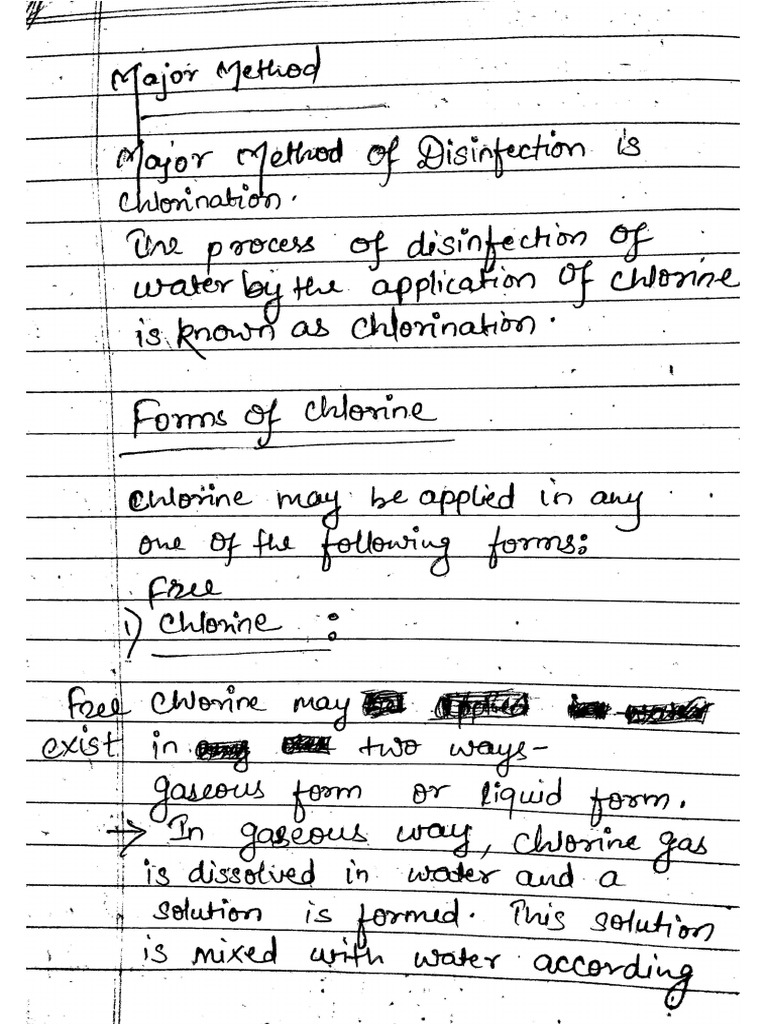 Major Method
Major Method of Disinfection is
Chlorination.
The process of disinfection of
water by the application of chlorine
is known as Chlorination.
Forms of Chlorine
Chlorine may be applied in any
one of the following forms:
Free
1) Chlorine :
Free Chlorine may
exist in two ways-
gaseous form or liquid form.
→ In gaseous way, Chlorine gas
is dissolved in water and a
solution is formed. This solution
is mixed with water according